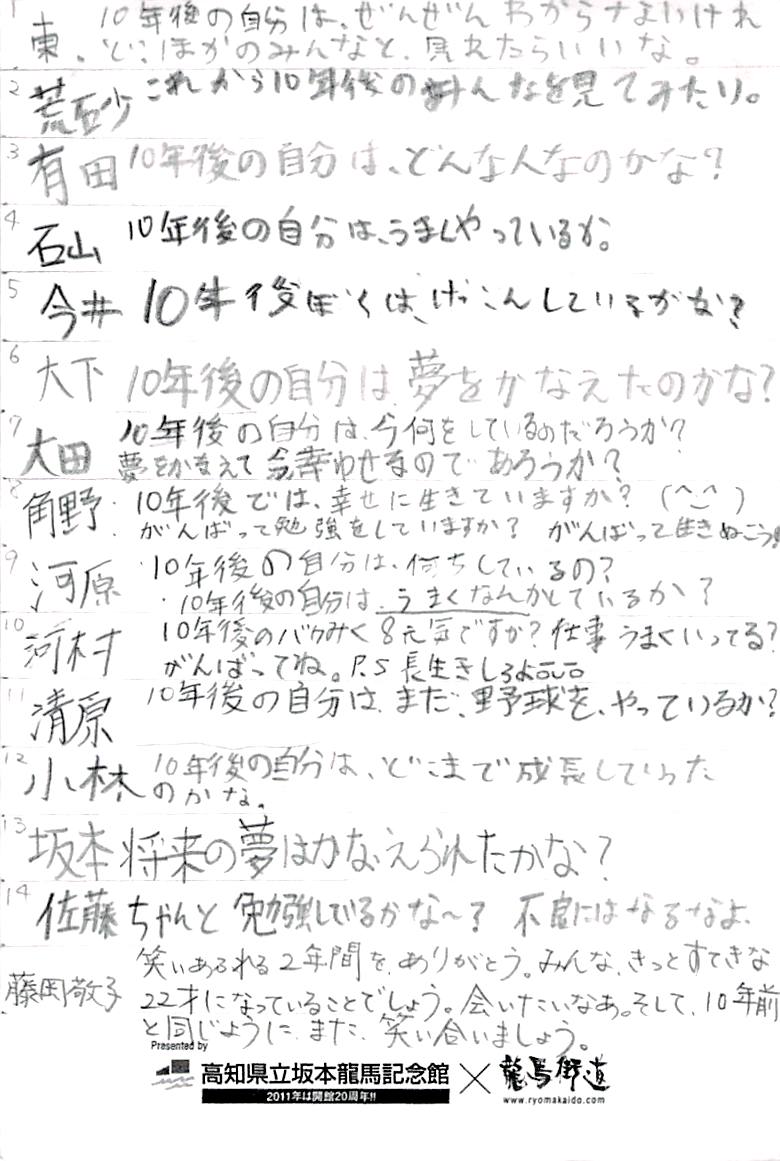 1 東 10年後の自分は、ぜんぜんわからないけれ
ど、ほかのみんなと、見れたらいいな。
2 荒石少 これから10年後のみんなを見てみたい。
3 有田 10年後の自分は、どんな人なのかな?
4 石山 10年後の自分は、うまくやっているか。
5 今井 10年後ぼくは、けっこんしているがな?
6 大下 10年後の自分は、夢をかなえたのかな?
7 大田 10年後の自分は、今何をしているのだろうか?
夢をかなえて今幸わせなのであろうか?
8 角野 10年後では、幸せに生きていますか? (^-^)
がんばって勉強をしていますか? がんばって生きぬこう!
9 河原 ・10年後の自分は、何をしているの?
・10年後の自分は、うまくなんかしているか?
10 河村 10年後のバクみく8元気ですか?仕事うまくいってる?
がんばってね。P.S 長生きしろよ
11 清原 10年後の自分は、まだ、野球を、やっているか?
12 小林 10年後の自分は、どこまで成長していった
のかな。
13 坂本 将来の夢はかなえられたかな?
14 佐藤 ちゃんと勉強しているかな~? 不良にはなるなよ、
藤岡敬子 笑いあふれる2年間を、ありがとう。みんな、きっとすてきな
22才になっていることでしょう。会いたいなあ。そして、10年前
と同じように、また、笑い合いましょう。
Presented by
高知県立坂本龍馬記念館 × 龍馬街道
2011年は開館20周年!! www.ryomakaido.com